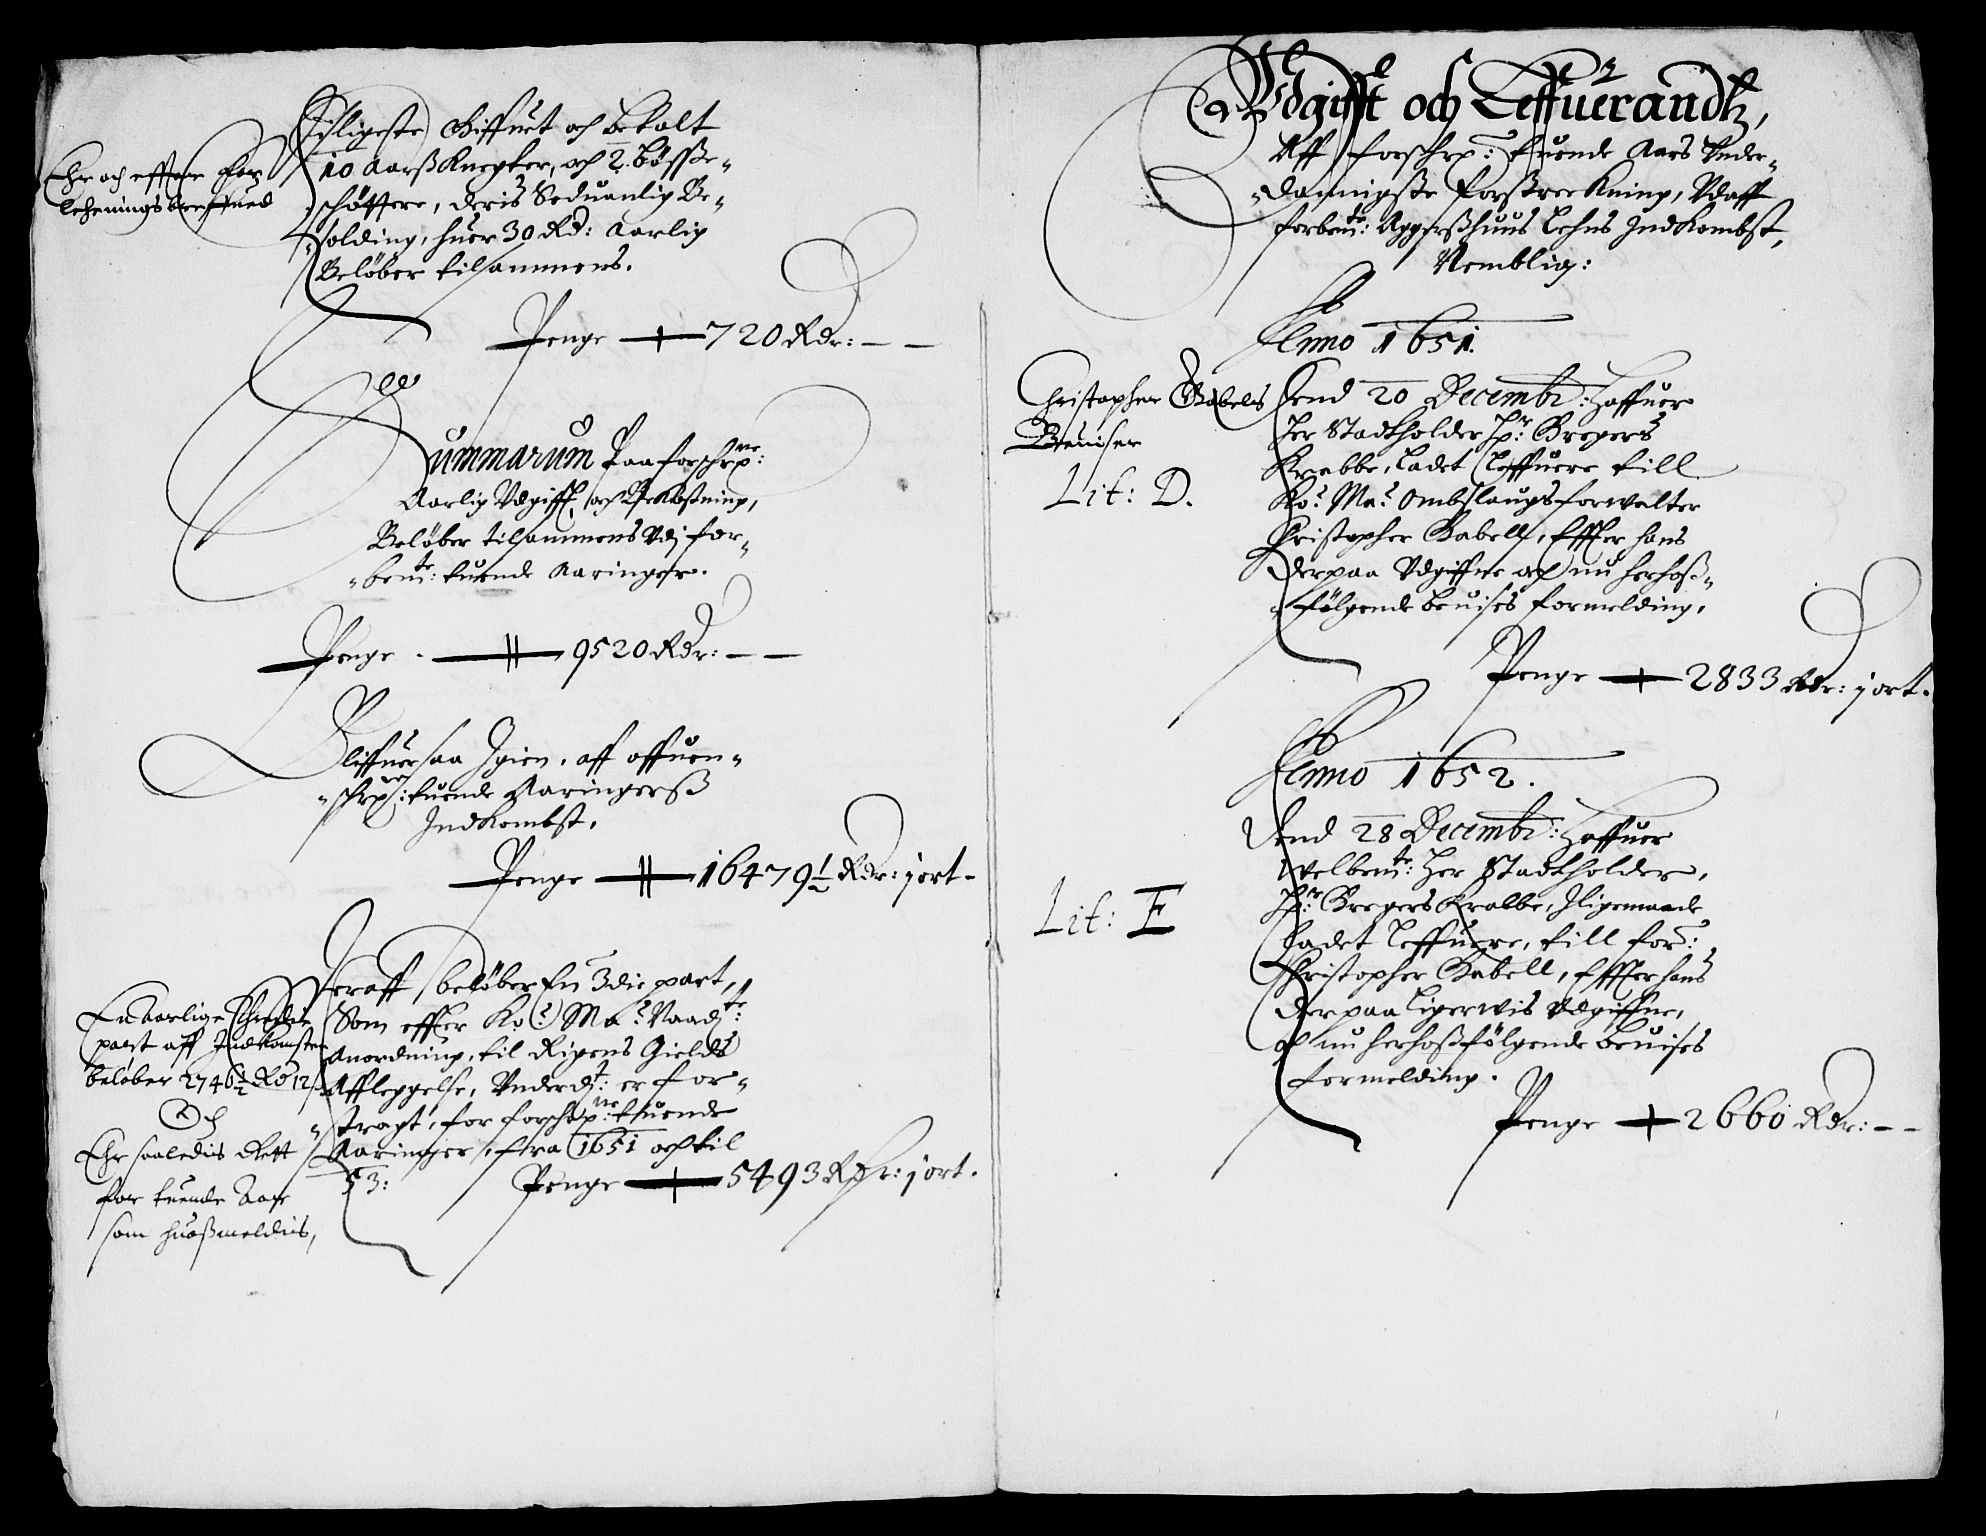 Ehr och effter for
lehenings breffued
Iligeste Giffuet och betalt
10 Aarß Knegter, och 2. Bösse-
schötter, deris Seduanlig Be-
solding, huer 30 Rd: Aarlig
Beløber tilsammens.
Penge 720 Rdr: — —
Summarum Paa forschrp:ne
Aarlig Vdgifft, och Bekostning,
Beløber tilsammens Vdj for-
bem:te tuende Aaringer.
Penge 9520 Rdr: — —
Bliffuer saa Igien, aff offuen-
schrp:ne tuende Aaringerß
Indkombst,
Penge 16479½ Rdr: j ort.
En Aarlige
part aff Indkomsten
beløber 2746½ Rd 12 s
Och
Ehr saaledis Rett
for tuende Aar
som huoßmeldis,
Heraff beløber En 3die part,
Som effter Ko: Ma: Naad:te
Anordning, til Rigens Gields
Affleggelse, Vnderd:t er for-
tragt, for forschrp:ne tuende
Aaringer, fra 1651 och til
53: Penge 5493 Rdr: j ort.
Vdgifft och Leffuerandtz,
Aff forschrp: tuende Aars Vnder-
dannigste forstreckning, Vdaff
forbem:te Aggerßhuus Lehns Indkombst,
Nemblig:
Anno 1651.
Christopher Gabels
Beuiser
Lit: D.
Dend 20 Decembr: Haffuer
Her Stadtholder Hr: Gregers
Krabbe, Ladet Leffuere till
Ko: Ma: Ombslaugsforwalter
Christopher Gabell, Effter hans
Derpaa Vdgiffne och nu herhoß-
følgende beuises formelding,
Penge 2833 Rdr: j ort.
Anno 1652.
Lit: E
Dend 28 Decembr: Haffuer
Welbem:te Her Stadtholder,
Hr: Gregers Krabbe, Iligemaade
Ladet Leffuere, till for:
Christopher Gabell, Effter hans
Derpaa Ligerwis Vdgiffne,
och nu herhoßfølgende beuises
formelding.
Penge 2660 Rdr: — —